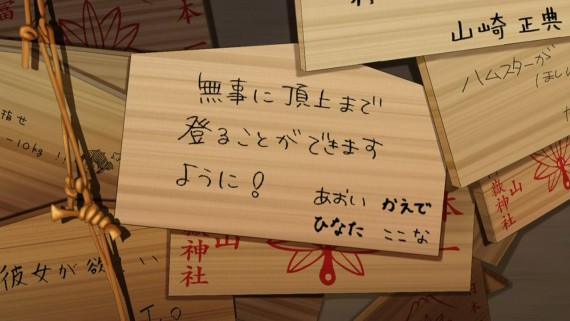 山崎 正典
ハムスターが
ほしい
無事に頂上まで
登ることができます
ように!
あおい かえで
ひなた ここな
指せ
-10kg!!
彼女が欲しい
T.O
山
嶽神社
山
嶽神社
本一